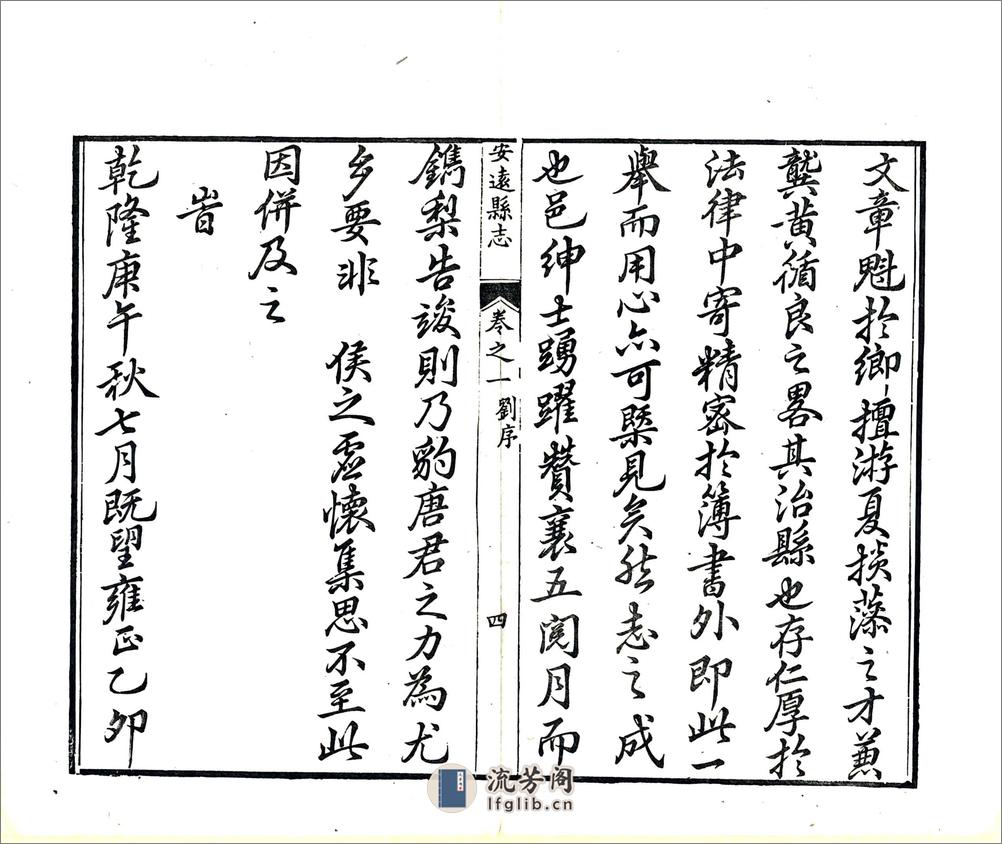 文章魁於鄉擅游夏掞藻之才兼
龔黃循良之畧其治縣也存仁厚於
法律中寄精密於簿書外即此一
舉而用心亦可槩見矣然志之成
也邑紳士踴躍贊襄五閱月而
安遠縣志
卷之一 劉序
四
鐫梨告竣則乃豹唐君之力為尤
多要非 侯之虛懷集思不至此
因併及之
旹
乾隆庚午秋七月既望雍正乙卯
流芳阁
lfglib.cn